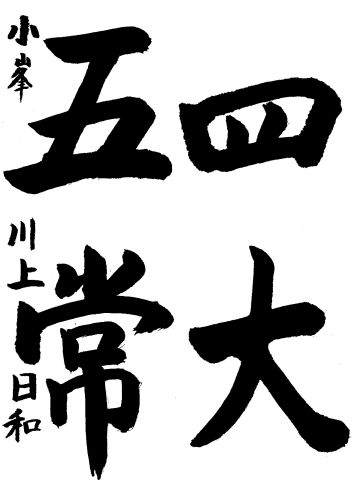 四大
五常
小峯 川上日和